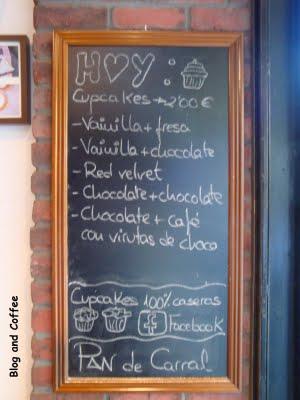 H♥Y:
Cupcakes → 2'00 €
- Vainilla + fresa
- Vainilla + chocolate
- Red velvet
- Chocolate + chocolate
- Chocolate + café
con virutas de choco
Cupcakes 100% caseros
f Facebook
PAN de Carral
Blog and Coffee